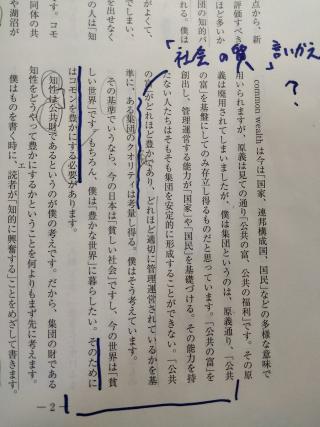 「社会の質」言いかえ
?
点から、新
評価すべき
がよくて、
を出せなく
の人は「知
同体の共
る。コモ
や湖沼が
common wealth は今は「国家、連邦構成国、国民」などの多様な意味で
用いられますが、原義は見ての通り「公共の富、公共の福利」です。その原
義は廃用されてしまいましたが、僕は集団というのは、原義通り、「公共
の富」を基盤にしてのみ存立し得るものだと思っています。「公共の富」を
創出し、管理運営する能力が「国家」や「国民」を基礎づける。その能力を持
たない人たちはそもそも集団を安定的に形成することができない。「公共
の富」がどれほど豊かであり、どれほど適切に管理運営されているかを基
準に、ある集団のクオリティは考量し得る。僕はそう考えています。
その基準でいうなら、今の日本は「貧しい社会」ですし、今の世界は「貧
しい世界」です。もちろん、僕は「豊かな世界」に暮らしたい。そのために
はコモンを豊かにする必要があります。
知性は公共財であるというのが僕の考えです。だから、集団の財である
知性をどうやって豊かにするかということを何よりもまず先に考えます。
エ
僕はものを書く時に、読者が「知的に興奮する」ことをめざして書きます。
—2